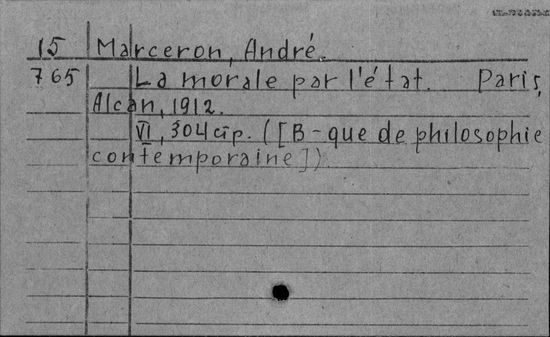 15 Marceron, André.
765 La morale par l'état. Paris,
Alcan, 1912.
VI, 304 стр. ([B-que de philosophie
contemporaine]).